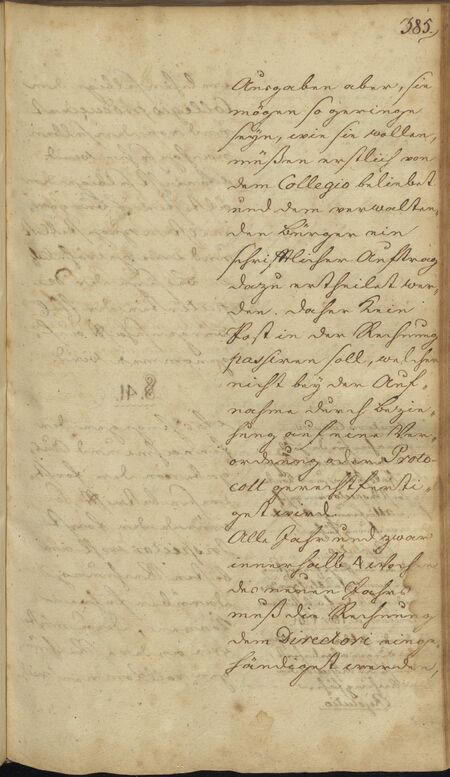 385.
Ausgaben aber, sie
mögen so geringe
seyn, wie sie wollen,
müßen erstlich von
dem Collegio beliebet
und dem verwalten-
den Bürger ein
schriftlicher Auftrag
dazu ertheilet wer-
den. Daher kein
Post in der Rechnung
passiren soll, welcher
nicht bey der Auf-
nahme durch Bezie-
hung auf eine Ver-
ordnung oder Proto-
coll gerechtferti-
get wird.
Alle Jahr und zwar
innerhalb 4 Wochen
des neuen Jahrs
muß die Rechnung
dem Directori einge-
händiget werden,